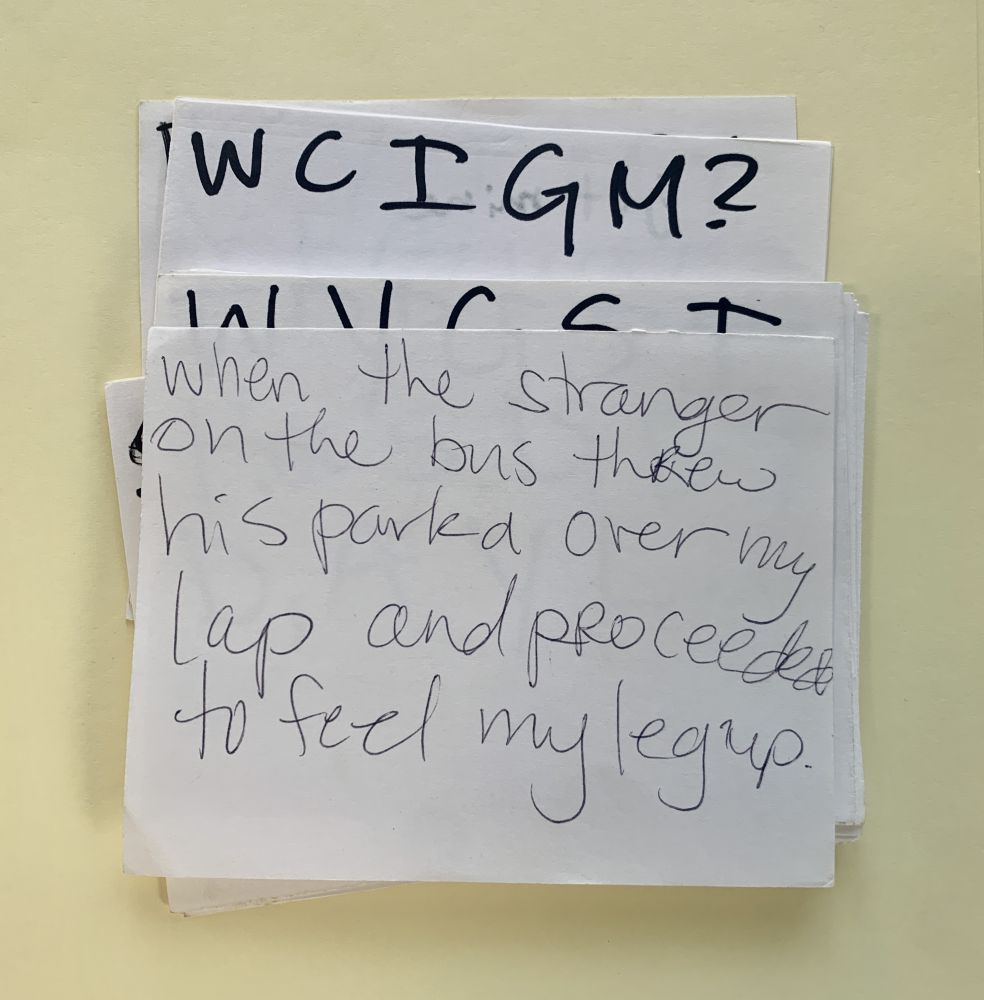 WCIGM?
W Y C S I
when the stranger
on the bus threw
his parka over my
lap and proceeded
to feel my leg up.